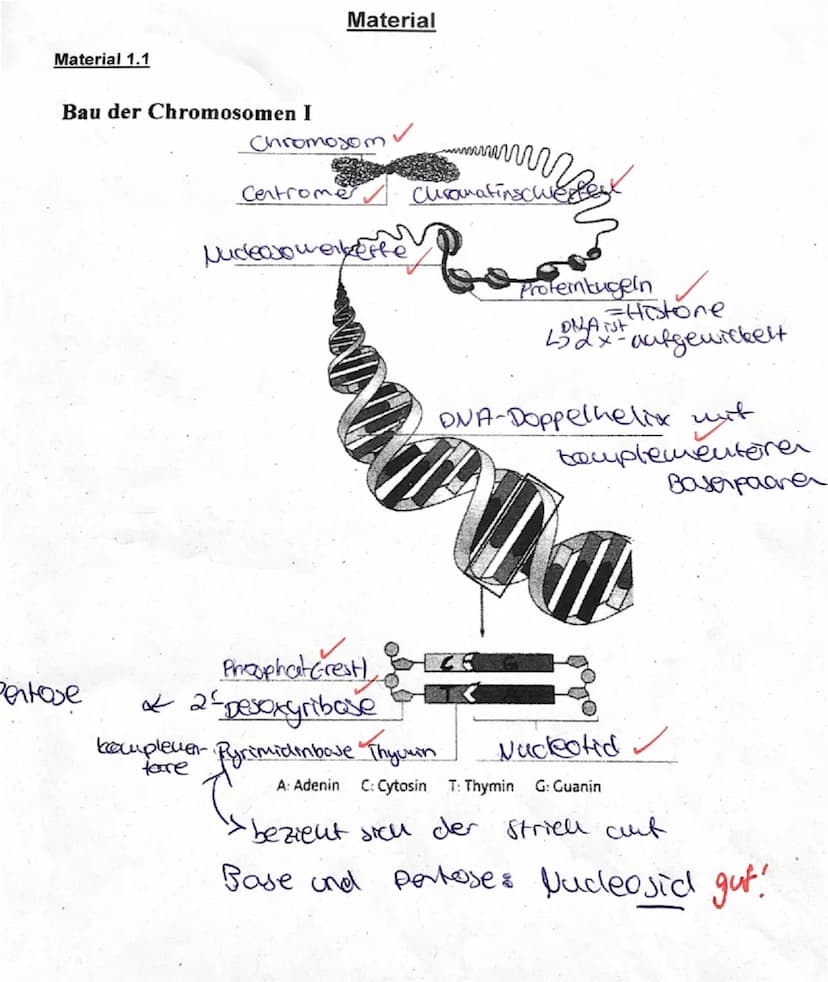 Material
Material 1.1
Bau der Chromosomen I
Chromosom
Centromer
Chromatinschleifen
Nucleosomenkette
Proteinkugeln
=Histone
↳ DNA ist 2x-aufgewickelt
DNA-Doppelhelix mit
komplementären
Basenpaaren
C G
Phosphat(-rest)
T A
Pentose
2' Desoxyribose
komplemen-
täre
Pyrimidinbase Thymin
Nucleotid
A: Adenin C: Cytosin T: Thymin G: Guanin
bezieht sich der Strich auf
Base und Pentose: Nucleosid gut!